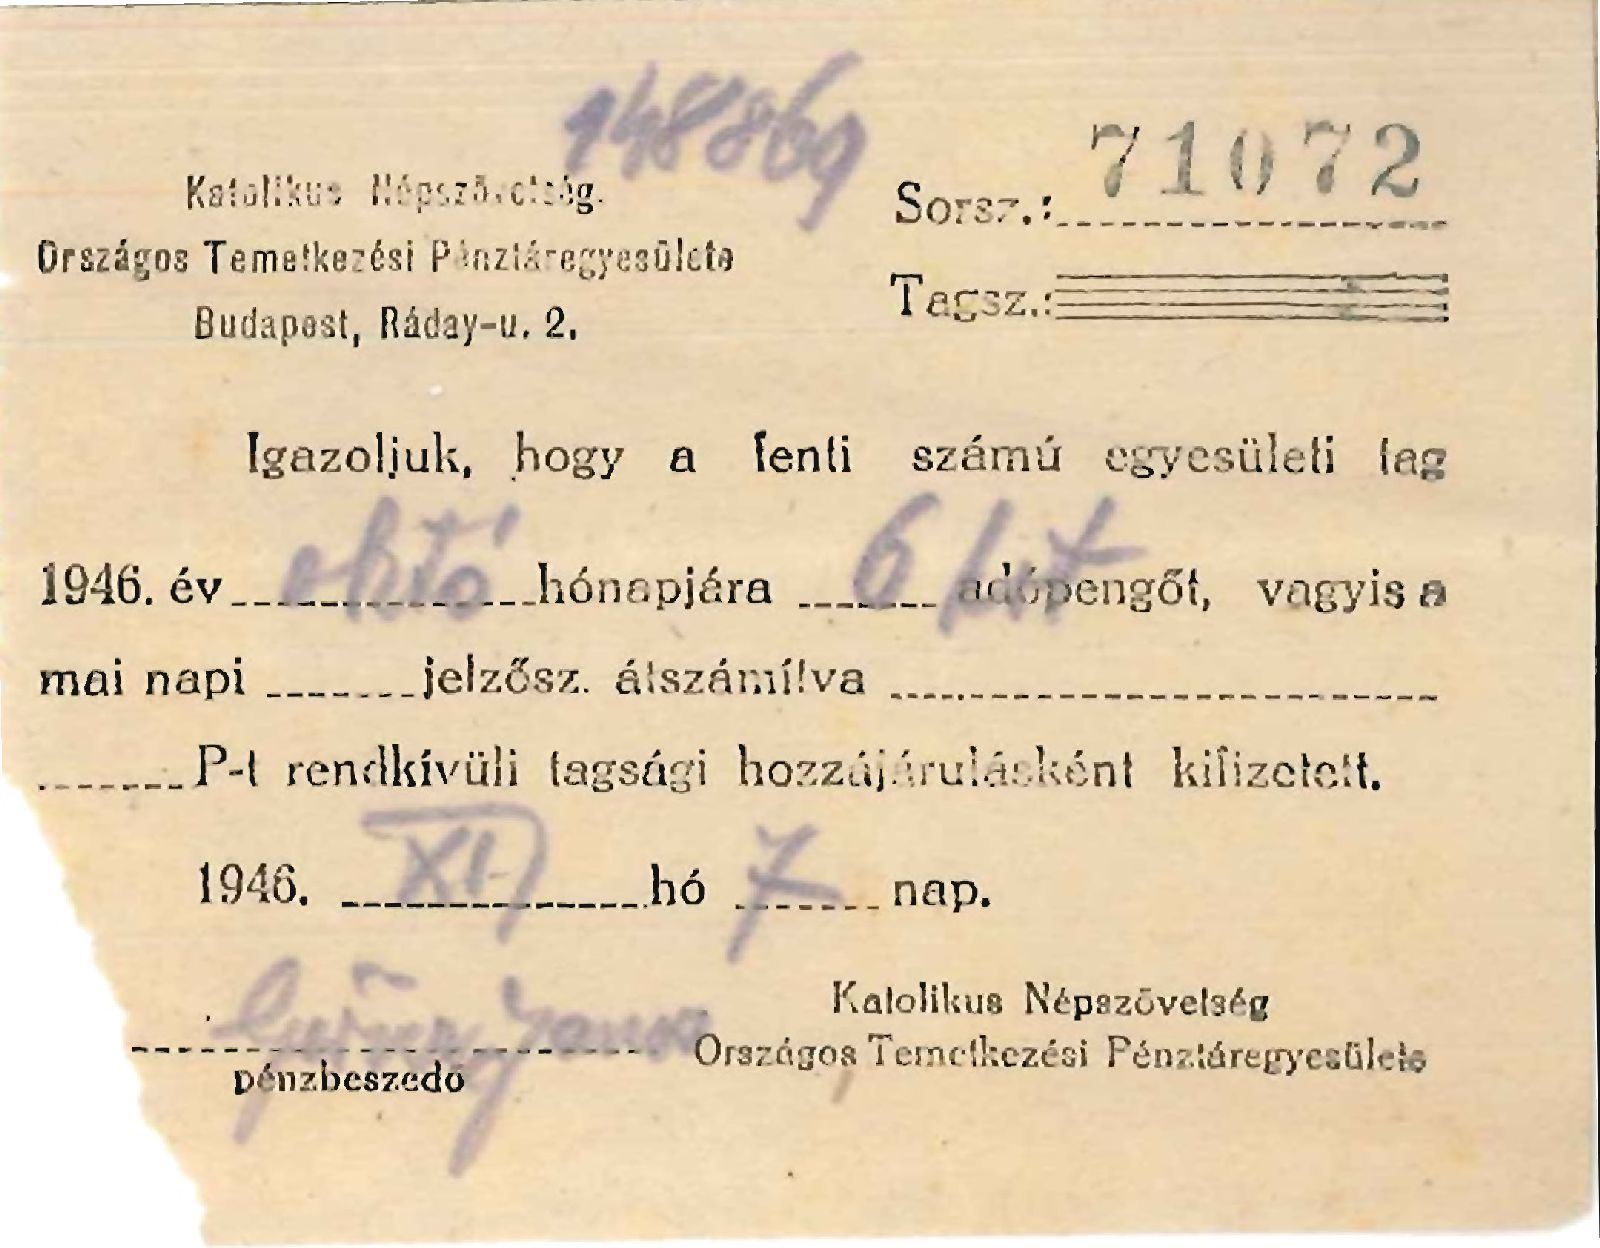 148869
Katolikus Népszövetség.
Országos Temetkezési Pénztáregyesülete
Budapest, Ráday-u. 2.
Sorsz.: 71072
Tagsz.:
Igazoljuk, hogy a fenti számú egyesületi tag
1946. év októ hónapjára 6 frt adópengőt, vagyis a
mai napi jelzősz. átszámítva
P-t rendkívüli tagsági hozzájárulásként kifizetett.
1946. XI hó 7 nap.
pénzbeszedő
Katolikus Népszövetség
Országos Temetkezési Pénztáregyesülete